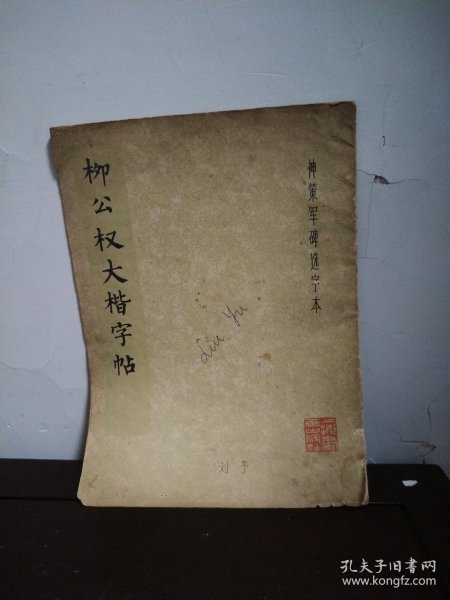 神策军碑选字本
柳公权大楷字帖
Liu Yu
刘予
孔夫子旧书网
www.kongfz.com